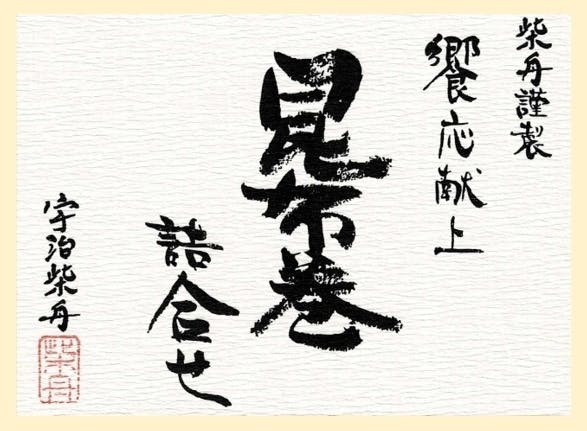 柴舟謹製
饗応献上
昆布巻
詰合せ
宇治柴舟
柴舟